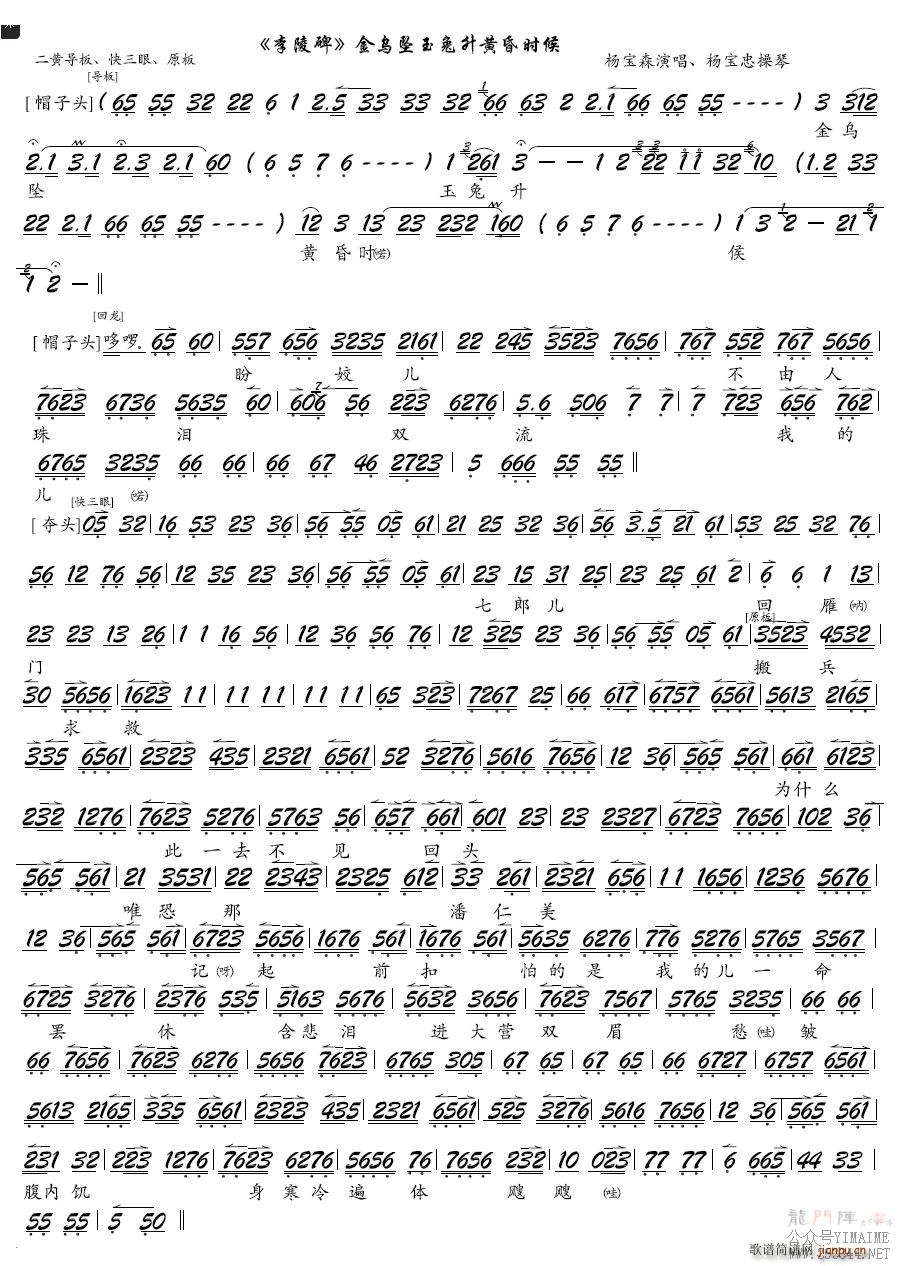 《李陵碑》金乌坠玉兔升黄昏时候
二黄导板、快三眼、原板
杨宝森演唱、杨宝忠操琴
[导板]
[帽子头] (65 55 32 22 6 1 2.5 33 33 32 66 63 2 2.1 66 65 55 ----) 3 312
金乌
2.1 3.1 2.3 2.1 60 (6 5 7 6 ----) 1 261 3 - - 1 2 22 11 32 10 (1.2 33
坠 玉兔升
22 2.1 66 65 55 ----) 12 3 13 23 232 160 (6 5 7 6 ----) 1 3 2 - 21 1
黄昏时(喏) 候
1 2 - ‖
[回龙]
[帽子头] 哆啰. 65 60 | 557 656 3235 2161 | 22 245 3523 7656 | 767 552 767 5656 |
盼 姣 儿 不 由 人
7623 6736 5635 60 | 606 56 223 6276 | 5.6 506 7 7 | 7 723 656 762 |
珠 泪 双 流 我 的
6765 3235 66 66 | 66 67 46 2723 | 5 666 55 55 ‖
儿 (喏)
[快三眼]
[夺头] 05 32 | 16 53 23 36 | 56 55 05 61 | 21 25 32 36 | 56 3.5 21 61 | 53 25 32 76 |
56 12 76 56 | 12 35 23 36 | 56 55 05 61 | 23 15 31 25 | 23 25 61 2 | 6 6 1 13 |
七 郎 儿 回 雁 (呐)
[原板]
23 23 13 26 | 1 1 16 56 | 12 36 56 76 | 12 325 23 36 | 56 55 05 61 | 3523 4532 |
门 搬 兵
30 5656 | 1623 11 | 11 11 | 65 323 | 7267 25 | 66 617 | 6757 6561 | 5613 2165 |
求 救
335 6561 | 2323 435 | 2321 6561 | 52 3276 | 5616 7656 | 12 36 | 565 561 | 661 6123 |
为什么
232 1276 | 7623 5276 | 5763 56 | 657 661 | 601 23 | 23 2327 | 6723 7656 | 102 36 |
此 一 去 不 见 回 头
565 561 | 21 3531 | 22 2343 | 2325 612 | 33 261 | 2321 656 | 11 1656 | 1236 5676 |
唯 恐 那 潘 仁 美
12 36 | 565 561 | 6723 5656 | 1676 561 | 1676 561 | 5635 6276 | 776 5276 | 5765 3567 |
记 (呀) 起 前 扣 怕 的 是 我 的 儿 一 命
6725 3276 | 2376 535 | 5163 5676 | 5632 3656 | 7623 7567 | 5765 3235 | 66 66 |
罢 休 含 悲 泪 进 大 营 双 眉 愁 (哇) 皱
66 7656 | 7623 6276 | 5656 7623 | 6765 305 | 67 65 | 67 65 | 66 6727 | 6757 6561 |
5613 2165 | 335 6561 | 2323 435 | 2321 6561 | 525 3276 | 5616 7656 | 12 36 | 565 561 |
231 32 | 223 1276 | 7623 6276 | 5656 76 | 7656 232 | 10 023 | 77 77 | 6 665 | 44 33 |
腹内饥 身 寒 冷 遍 体 飕 飕 (哇)
55 55 | 5 50 ‖
龍門陣
公众号YIMAIME
歌谱简谱网 jianpu.cn